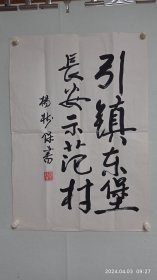 引镇东堡
长安示范村
杨彩保书
2024.04.03 09:27